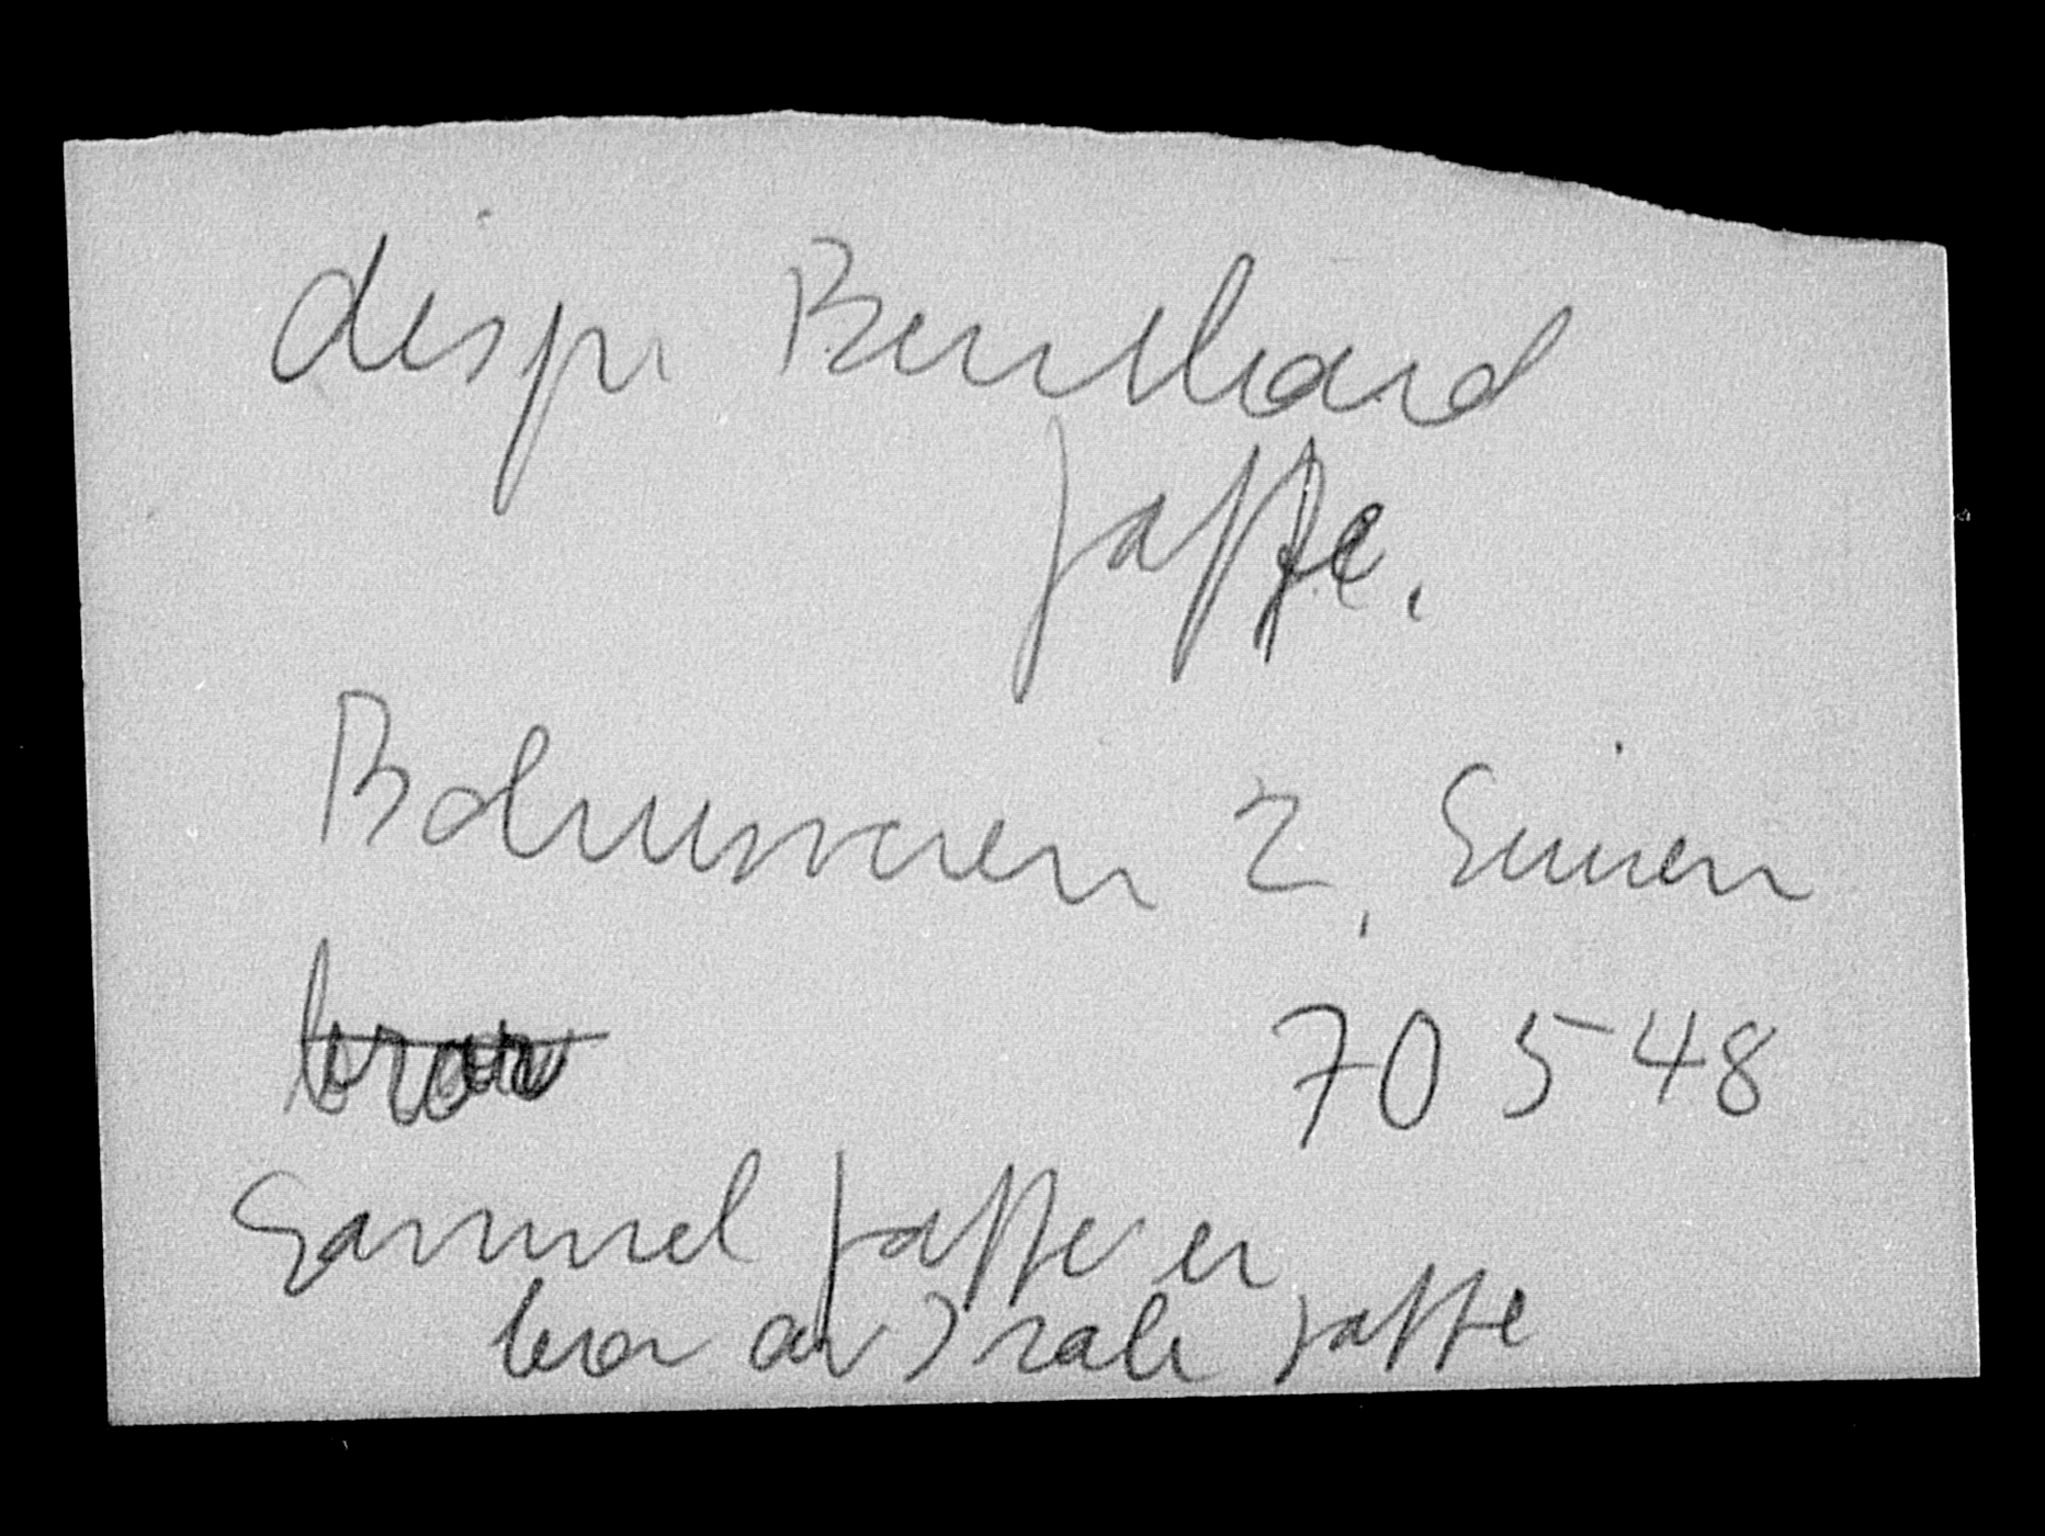 disp. Bernhard
Jaffe.
2, Semen
bror
70 548
Samuel Jaffe er
bror av Isak Jaffe